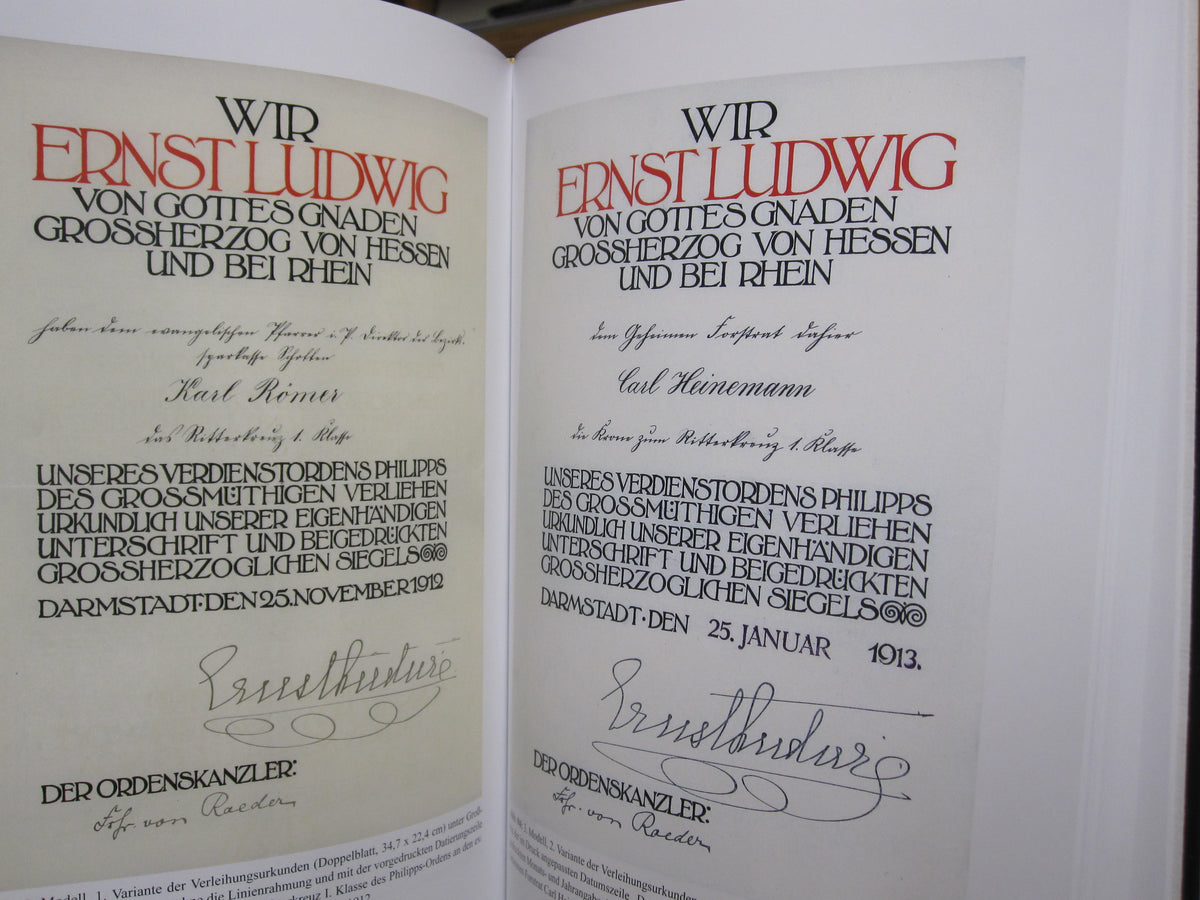 WIR
ERNST LUDWIG
VON GOTTES GNADEN
GROSSHERZOG VON HESSEN
UND BEI RHEIN
haben dem evangelischen Pfarrer i. P. Direktor der Bezirk-
sparkasse Schotten
Karl Römer
das Ritterkreuz 1. Klasse
UNSERES VERDIENSTORDENS PHILIPPS
DES GROSSMÜTHIGEN VERLIEHEN
URKUNDLICH UNSERER EIGENHÄNDIGEN
UNTERSCHRIFT UND BEIGEDRÜCKTEN
GROSSHERZOGLICHEN SIEGELS
DARMSTADT·DEN 25. NOVEMBER 1912
Ernst Ludwig
DER ORDENSKANZLER:
Frhr. von Roeder
Modell, 1. Variante der Verleihungsurkunden (Doppelblatt, 34,7 x 22,4 cm) unter Groß-
ne die Linienrahmung und mit der vorgedruckten Datierungszeile
kreuz I. Klasse des Philipps-Ordens an den ev.
1912
WIR
ERNST LUDWIG
VON GOTTES GNADEN
GROSSHERZOG VON HESSEN
UND BEI RHEIN
dem Geheimen Forstrat dahier
Carl Heinemann
die Krone zum Ritterkreuz 1. Klasse
UNSERES VERDIENSTORDENS PHILIPPS
DES GROSSMÜTHIGEN VERLIEHEN
URKUNDLICH UNSERER EIGENHÄNDIGEN
UNTERSCHRIFT UND BEIGEDRÜCKTEN
GROSSHERZOGLICHEN SIEGELS
DARMSTADT·DEN 25. JANUAR 1913.
Ernst Ludwig
DER ORDENSKANZLER:
Frhr. von Roeder
Modell, 2. Variante der Verleihungsurkunden
im Druck angepassten Datumszeile.
Monats- und Jahrangabe
Forstrat Carl